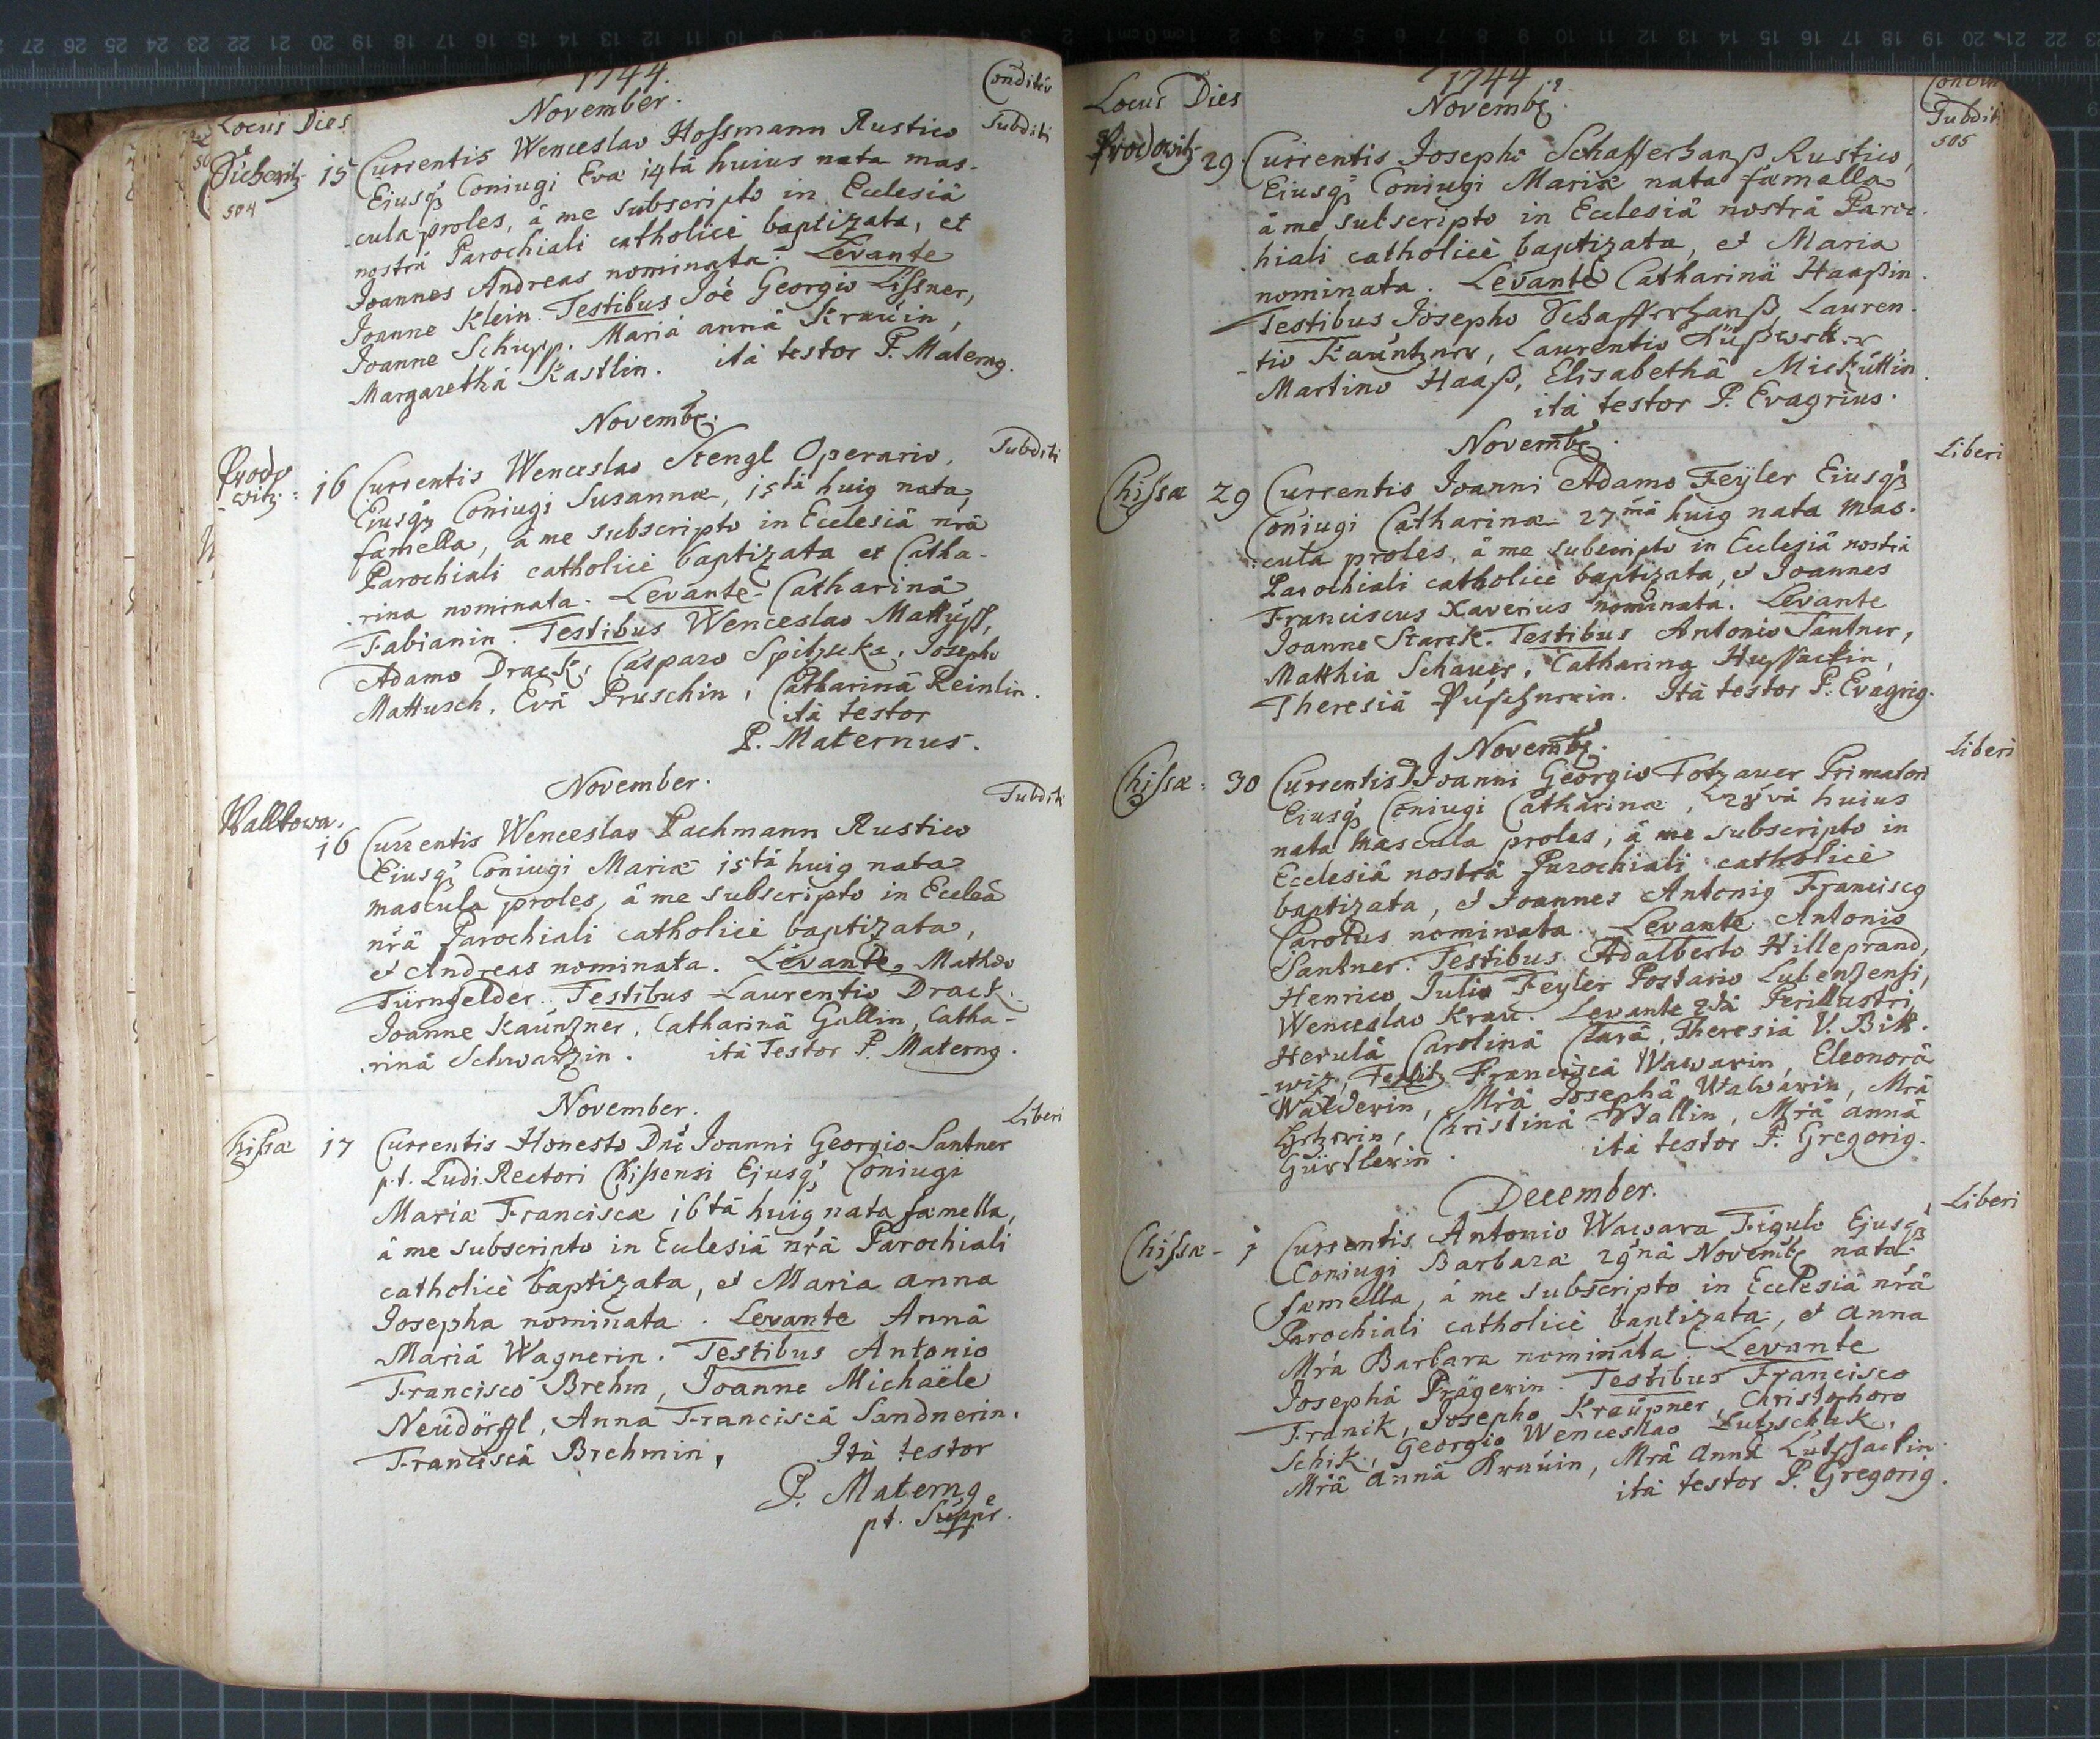 1744.
Locus Dies November. Conditio
Tichewitz 15 Currentis Wenceslao Hossmann Rustico Subditi
504 Eiusq₃ Coniugi Eva 14tâ huius nata mas-
-cula proles, â me subscripto in Ecclesiâ
nostrâ Parochiali catholicè baptizata, et
Joannes Andreas nominata. Levante
Joanne Klein. Testibus Joe Georgio Lissner,
Joanne Schupp. Mariâ annâ Krauin,
Margarethâ Kastlin. ità testor P. Maternq.
Novembr.
Prodo
witz: 16 Currentis Wenceslao Stengl Operario, Subditi
Eiusq₃ Coniugi Susanna, 15tâ huiq nata,
famella, â me subscripto in Ecclesiâ nrâ
Parochiali catholicè baptizata et Catha-
.rina nominata. Levante Catharinâ
Fabianin. Testibus Wenceslao Mattuss,
Adamo Drack, Casparo, Josepho
Mattusch, Evâ Pruschin, Catharinâ Reinlin.
ità testor
P. Maternus.
November.
Walltowa. Subditi
16 Currentis Wenceslao Pachmann Rustico
Eiusq₃ Coniugi Mariæ 15tâ huiq nata
mascula proles, â me subscripto in Eccleâ
nrâ Parochiali catholicè baptizata,
et Andreas nominata. Levante, Matheo
Türnfelder. Testibus Laurentio Drack.
Joanne Kaunzner, Catharinâ Gallin, Catha-
.rinâ Schwarzin. ità Testor P. Maternq.
November.
Chissæ 17 Currentis Honesto Dnõ Joanni Georgio Santner Liberi
p.t. Ludi Rectori Chissensi Ejusq₃ Coniugi
Mariæ Franciscæ 16tâ huiq nata famella,
â me subscripto in Ecclesiâ nrâ Parochiali
catholicè baptizata, et Maria Anna
Josepha nominata. Levante Annâ
Mariâ Wagnerin. Testibus Antonio
Francisco Brehm, Joanne Michaële
Neudörfl, Anna Franciscâ Sandnerin.
Franciscâ Brehmin, Ità testor
P. Maternq
pt. Suppr.
1744
Locus Dies Novembr. Condit
Prodowitz 29. Currentis Josepho Schafferhanß Rustico, Subditi
505
Eiusq₃ Coniugi Mariæ nata famella
â me subscripto in Ecclesiâ nostrâ Paroc.
hiali catholicè baptizata, et Maria
nominata. Levante Catharinâ Haaßin.
Testibus Josepho Schafferhanß, Lauren.
-tio Kauntzner, Laurentio
Martino Haaß, Elisabethâ
ità testor P. Evagrius.
Novembr.
Chissæ 29 Currentis Joanni Adamo Feyler Eiusq₃ Liberi
Coniugi Catharinæ 27mâ huiq nata mas.
:cula proles, â me subscripto in Ecclesiâ nostrâ
Parochiali catholicè baptizata, et Joannes
Franciscus Xaverius nominata. Levante
Joanne Starck. Testibus Antonio Santner,
Matthia Schauer, Catharina Hussackin,
Theresiâ Puschnerin. Ità testor P. Evagriq.
Novembr.
Chissæ: 30 Currentis D Joanni Georgio Totzauer Primatori Liberi
Eiusq₃ Coniugi Catharinæ, 28vâ huius
nata mascula proles, â me subscripto in
Ecclesiâ nostrâ Parochiali catholicè
baptizata, et Joannes Antoniq Franciscq
Carolus nominata. Levante Antonio
Santner. Testibus Adalberto Hilleprand,
Henrico, Julio Feyler Postario Lubenzensi,
Wenceslao Krau. Levante 2dâ Perillustri
Herulâ Carolinâ Clarâ, Theresiâ V. Bik.
-wiz, Testib Franciscâ Wawarin, Eleonorâ
Walderin, Mriâ Josephâ Wawarin, Mrâ
Christinâ Wallin, Mriâ annâ
Gürtlerin. ità testor P. Gregoriq.
December.
Chissæ - 1 Currentis Antonio Wawara Figulo Ejusq₃ Liberi
Coniugi Barbaræ 29nâ Novembr nata
famella, â me subscripto in Ecclesiâ nrâ
Parochiali catholicè baptizata, et Anna
Mrâ Barbara nominata. Levante
Josephâ Prägerin. Testibus Francisco
Franck, Josepho Kraupner, Christophoro
Schik, Georgio Wenceslao Lutzschak.
Mriâ Annâ Krauin, Mrâ Annâ Lutssackin.
ità testor P. Gregoriq.